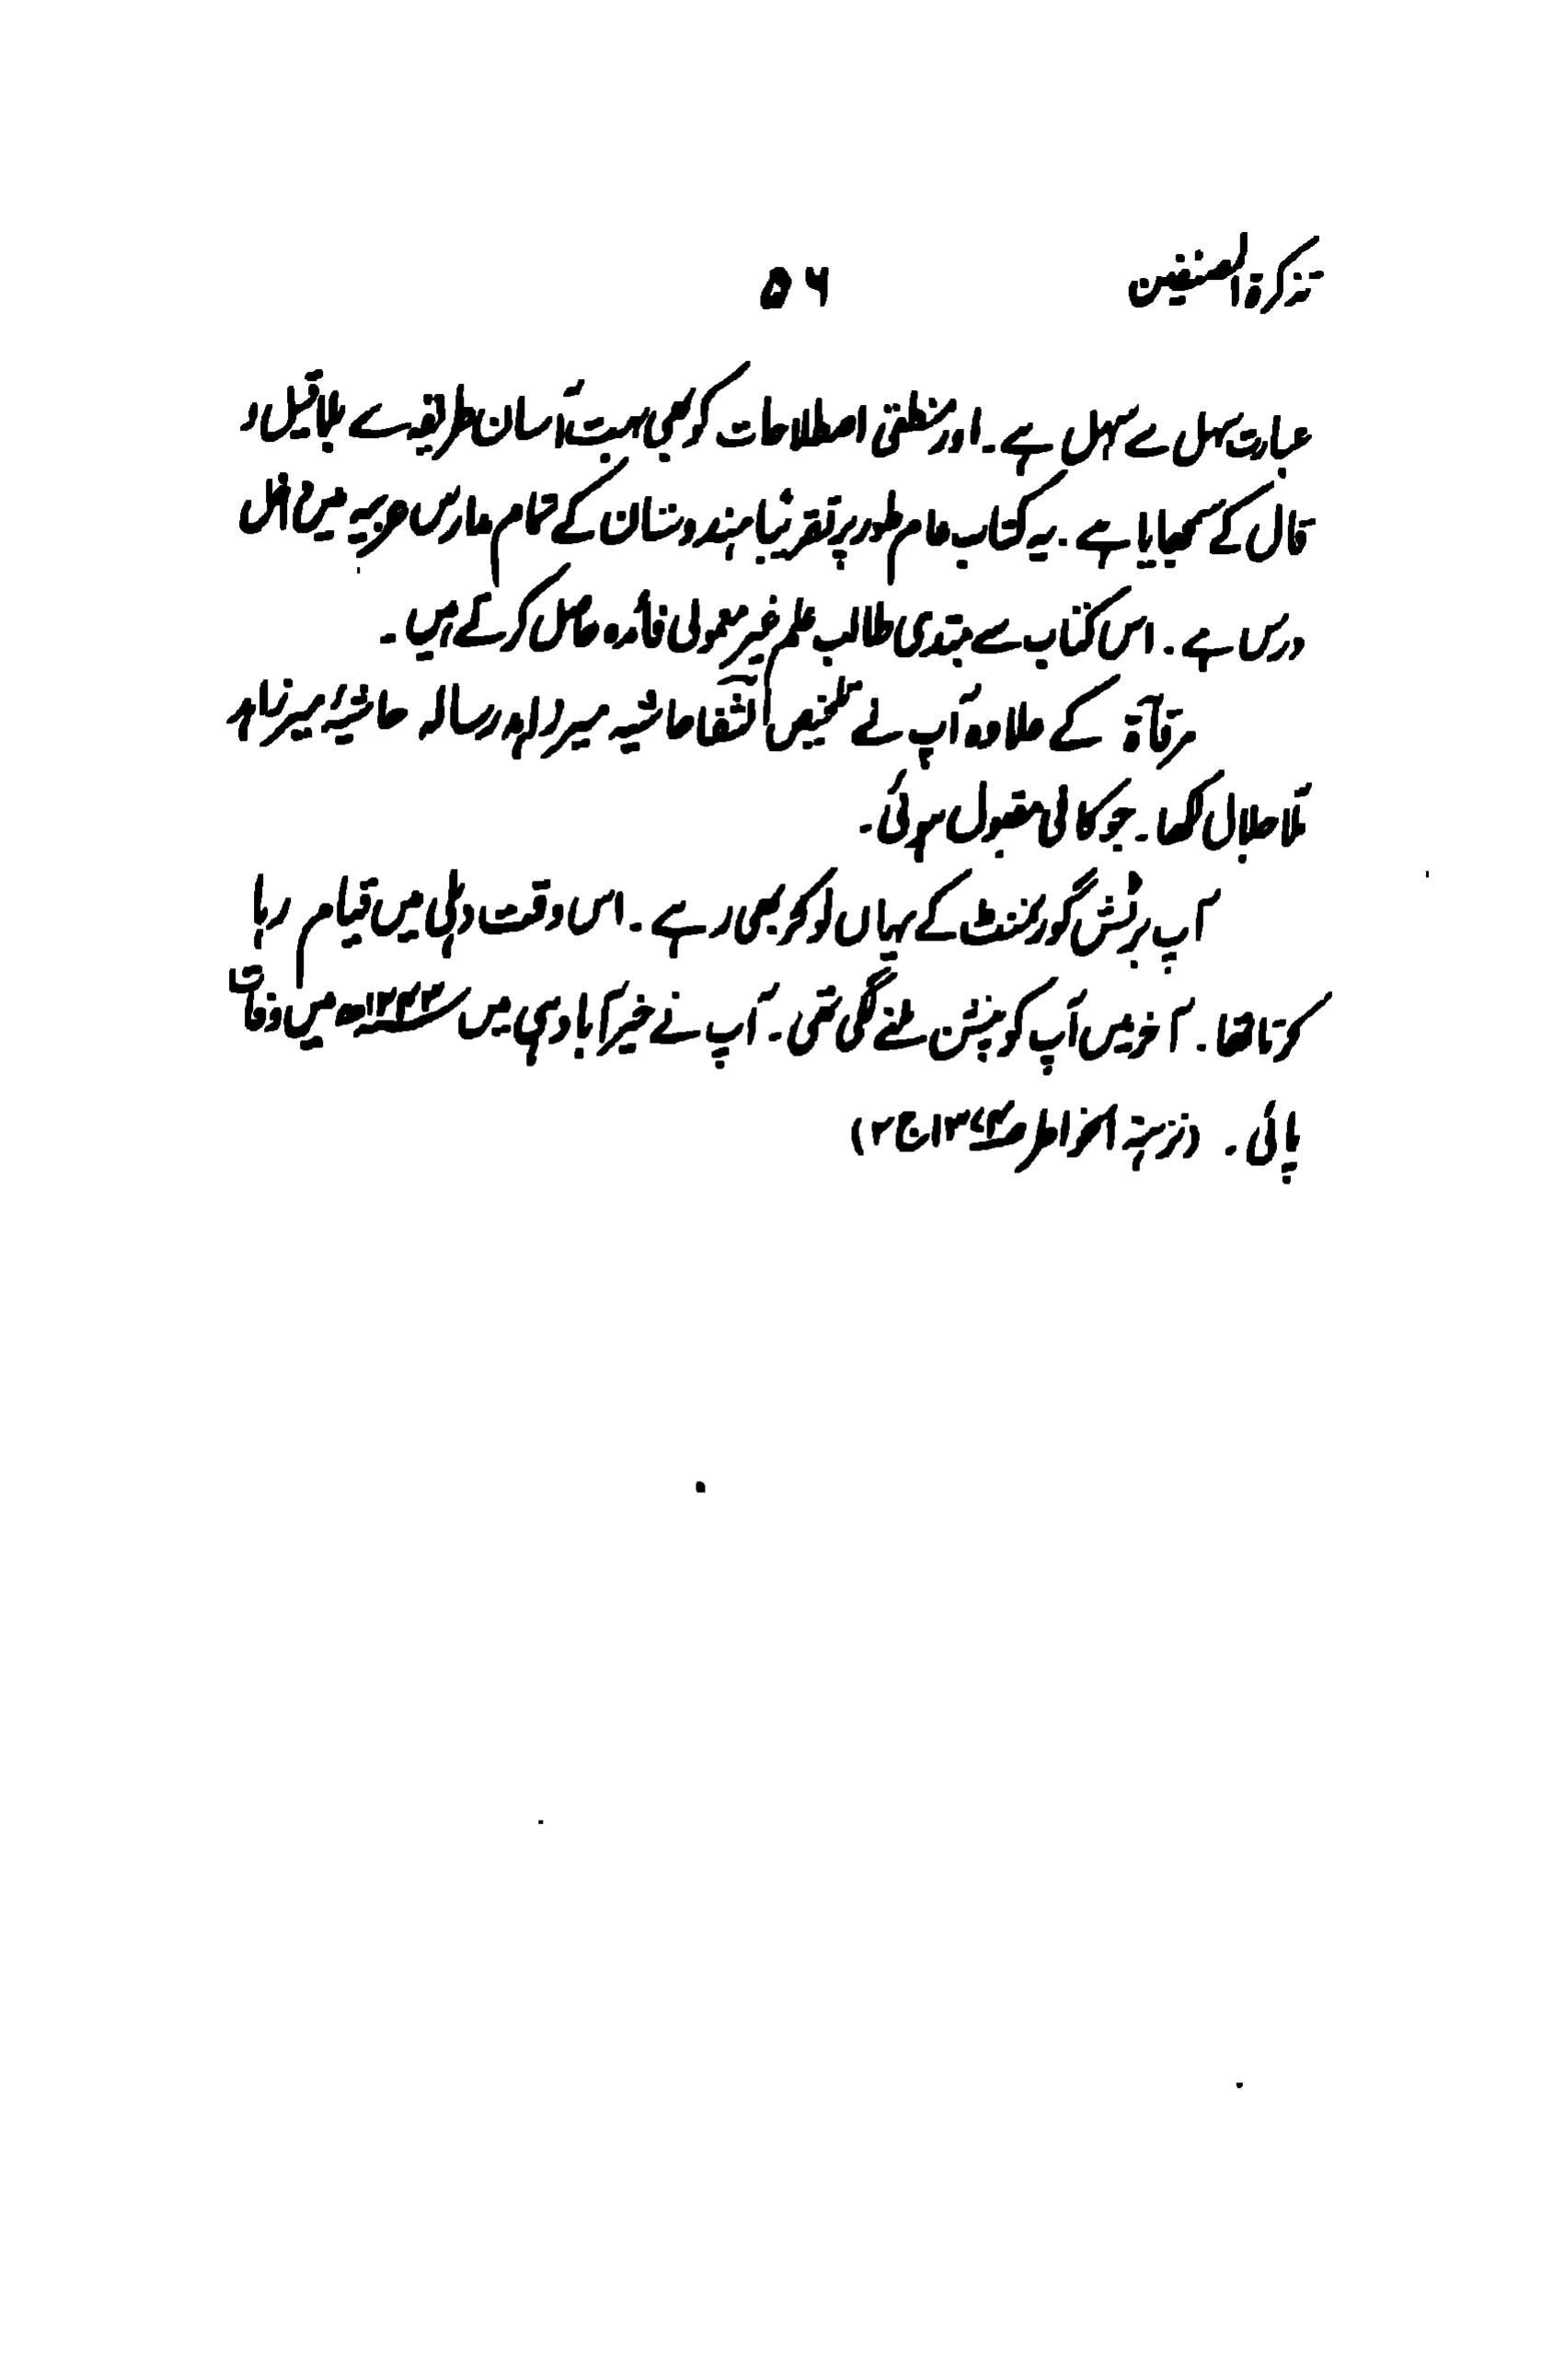 تذکرۃ المصنفین ۵۶
عبارت سہل سے سہل ہے۔ اور منطقی اصطلاحات کو بھی بہت آسان طریقہ سے بلا قیل و
قال کے سمجھایا ہے۔ یہ کتاب عام طور پر تقریبًا ہندوستان کے تمام مدارس عربیہ میں داخل
درس ہے۔ اس کتاب سے مبتدی طالب علم غیر معمولی فائدہ حاصل کرتے ہیں۔
مرقاۃ کے علاوہ آپ نے تلخیص الشفا حاشیہ میرزاہد رسالہ حاشیۂ میرزاہد
ملا جلال لکھا۔ جو کافی مقبول ہوئی۔
آپ برٹش گورنمنٹ کے یہاں نوکر بھی رہے۔ اس وقت دہلی میں قیام رہا
کرتا تھا۔ آخر میں آپ کو پنشن ملنے لگی تھی۔ آپ نے خیرآباد ہی میں ۱۲۴۳ھ میں وفات
پائی۔ (نزہتہ الخواطر ص۳۷۴ ج۲)